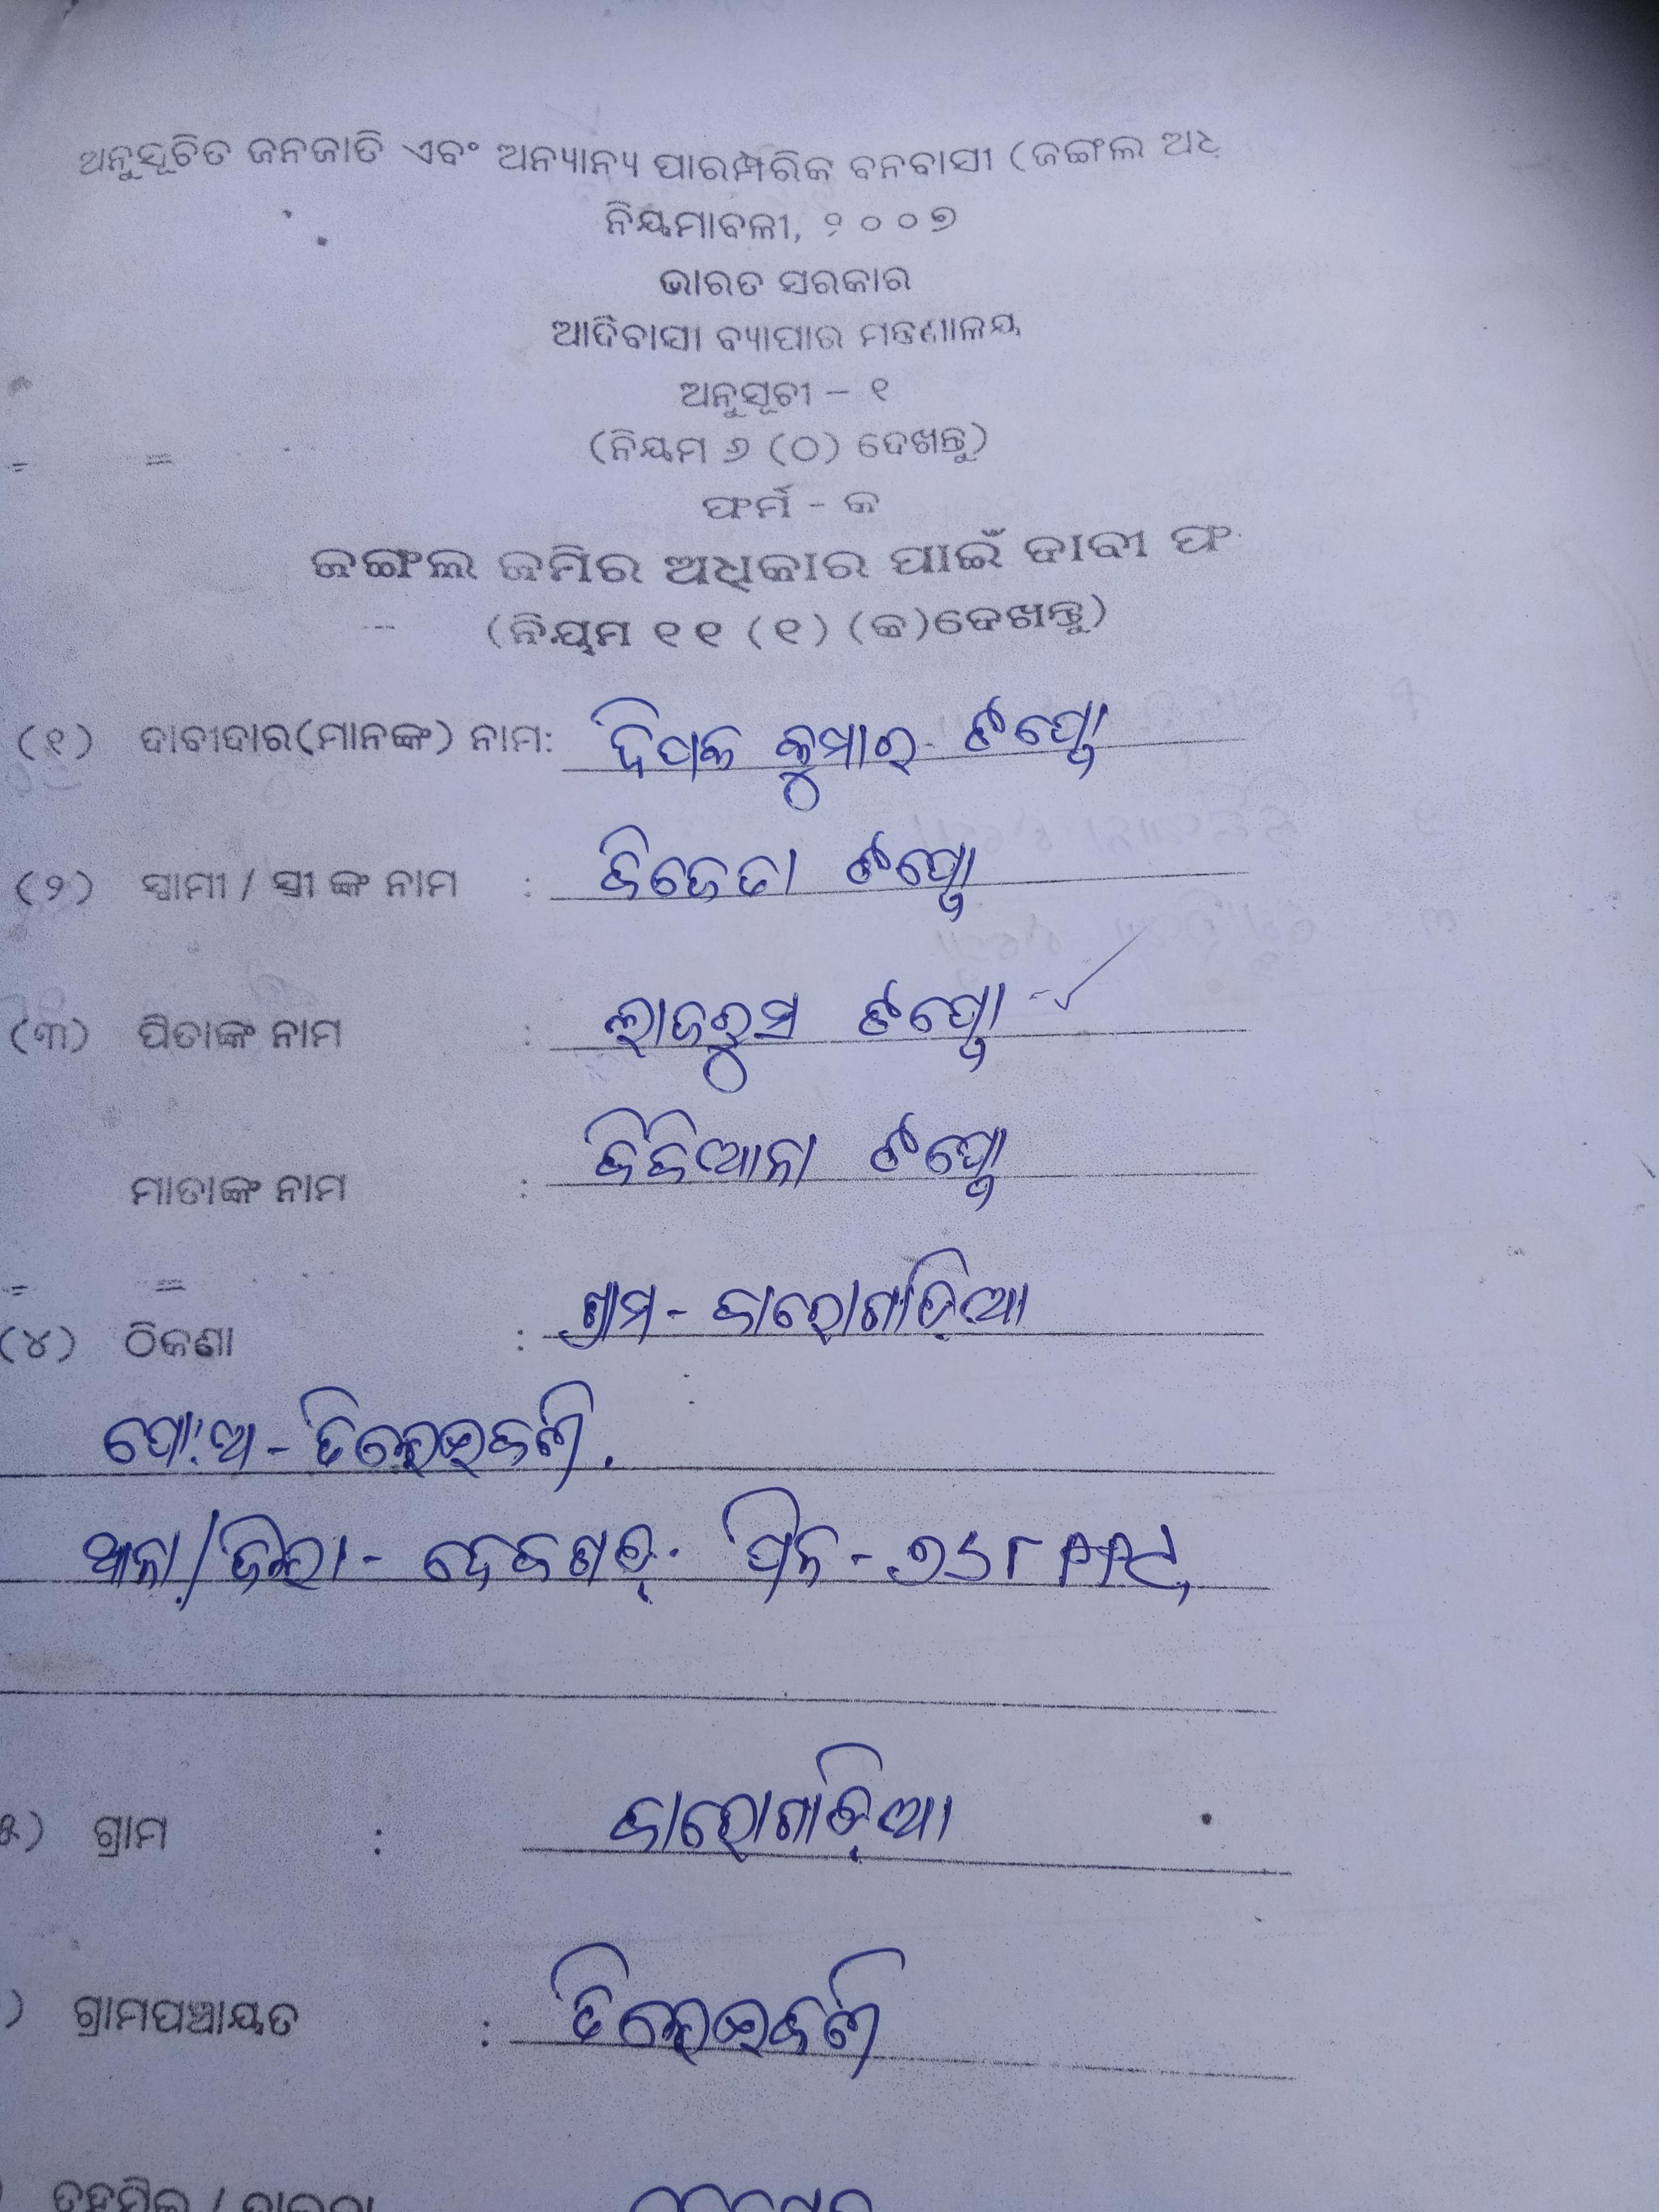 ଅନୁସୂଚିତ ଜନଜାତି ଏବଂ ଅନ୍ୟାନ୍ୟ ପାରମ୍ପରିକ ବନବାସୀ (ଜଙ୍ଗଲ
ନିୟମାବଳୀ, ୨୦୦୭
ଭାରତ ସରକାର
ଆଦିବାସୀ ବ୍ୟାପାର ମନ୍ତ୍ରଣାଳୟ
ଅନୁସୂଚୀ – ୧
(ନିୟମ ୬ (ଠ) ଦେଖନ୍ତୁ)
ଫର୍ମ - କ
ଜଙ୍ଗଲ ଜମିର ଅଧିକାର ପାଇଁ ଦାବୀ
(ନିୟମ ୧୧ (୧) (କ)ଦେଖନ୍ତୁ)
(୧) ଦାବୀଦାର(ମାନଙ୍କ) ନାମ: ଦିପକ କୁମାର ଟପ୍ପୋ
(୨) ସ୍ୱାମୀ / ସ୍ତ୍ରୀ ଙ୍କ ନାମ : ବିଜେତା ଟପ୍ପୋ
(୩) ପିତାଙ୍କ ନାମ : ଲାଜରୁସ ଟପ୍ପୋ
ମାତାଙ୍କ ନାମ : ବିବିଆନା ଟପ୍ପୋ
(୪) ଠିକଣା : ଗ୍ରାମ - ଜାରୋଗାଡ଼ିଆ
ପୋ:ଅ - ତିଲେଇବଣୀ.
ଥାନା/ଜିଲା - ଦେବଗଡ଼. ପିନ -
୫) ଗ୍ରାମ : ଜାରୋଗାଡ଼ିଆ
) ଗ୍ରାମପଞ୍ଚାୟତ : ତିଲେଇବଣୀ